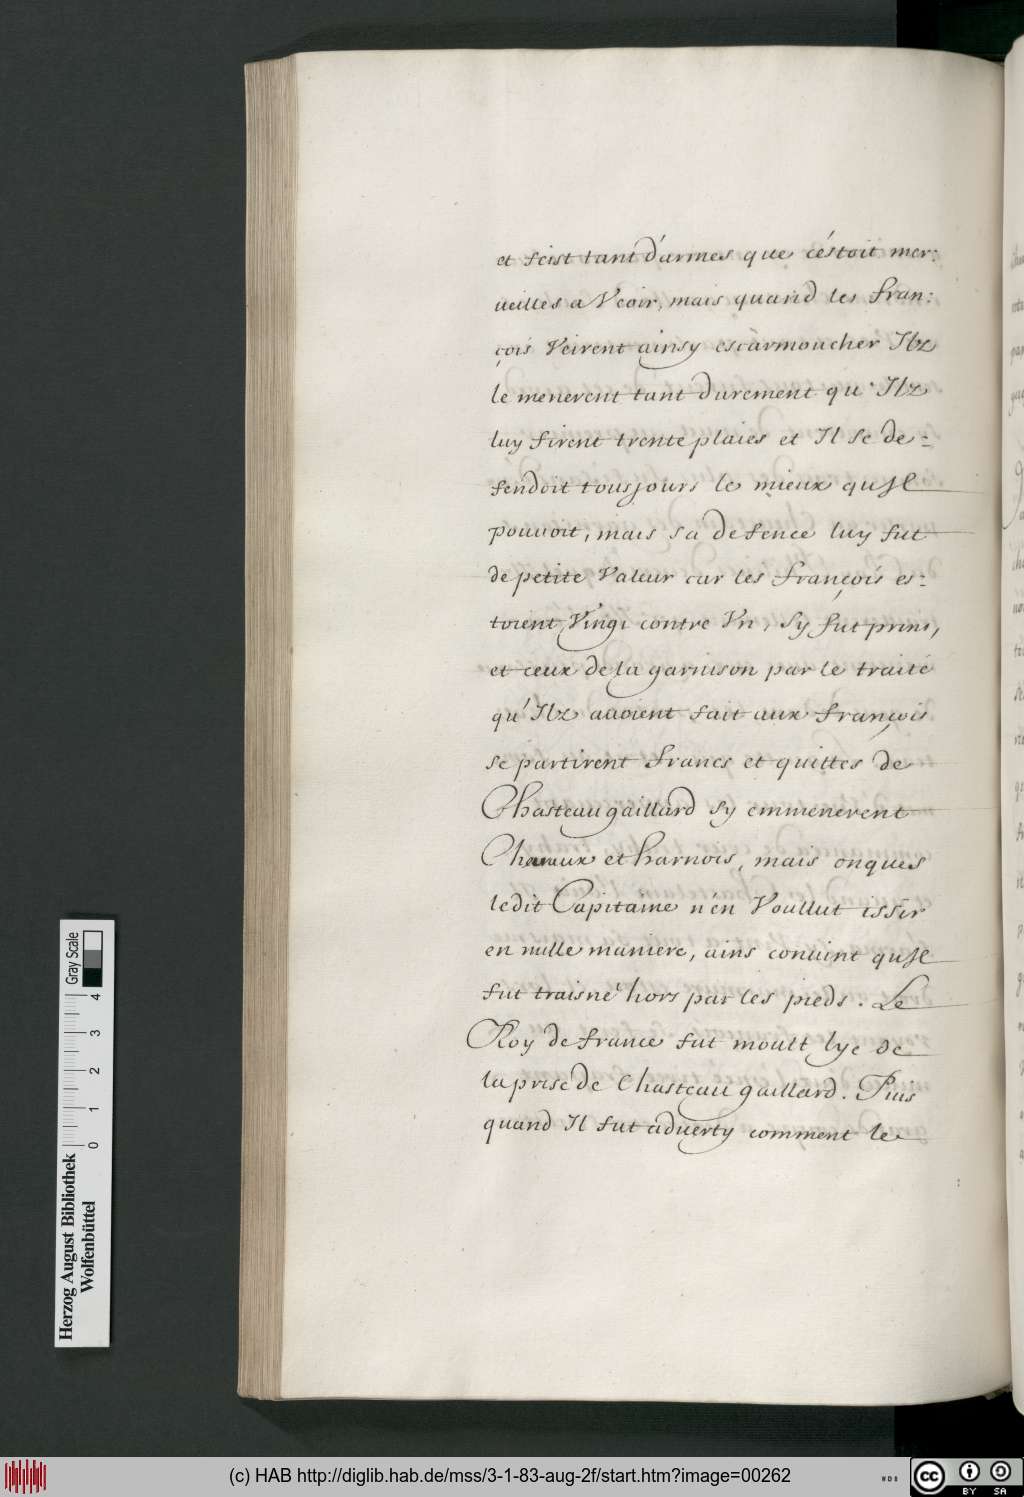 et feist tant d'armes que c'éstoit mer:
ueilles a Veoir, mais quand les fran:
çois Veirent ainsy escàrmoucher Ilz
le menerent tant durement qu' Ilz
luy firent trente plaies et Il se de-
fendoit tousjours le mieux quJl
pouuoit, mais sa defence luy fut
de petite Valeur car les françois es:
toient Vingt contre Vn, sy fut prins,
et ceux de la garnison par le traité
qu' Ilz auoient fait aux françois
se partirent francs et quittes de
Chasteau gaillard sy emmenerent
Chauaux et harnois, mais onques
ledit Capitaine n'en Voullut issir
en nulle maniere, ains conuint quJl
fut traisné hors par les pieds. Le
Roy de france fut moult lye de
la prise de Chasteau gaillard. Puis
quand Il fut aduerty comment le
Herzog August Bibliothek
Wolfenbüttel
0 1 2 3 4
Gray Scale
(c) HAB http://diglib.hab.de/mss/3-1-83-aug-2f/start.htm?image=00262
WDB
cc BY SA